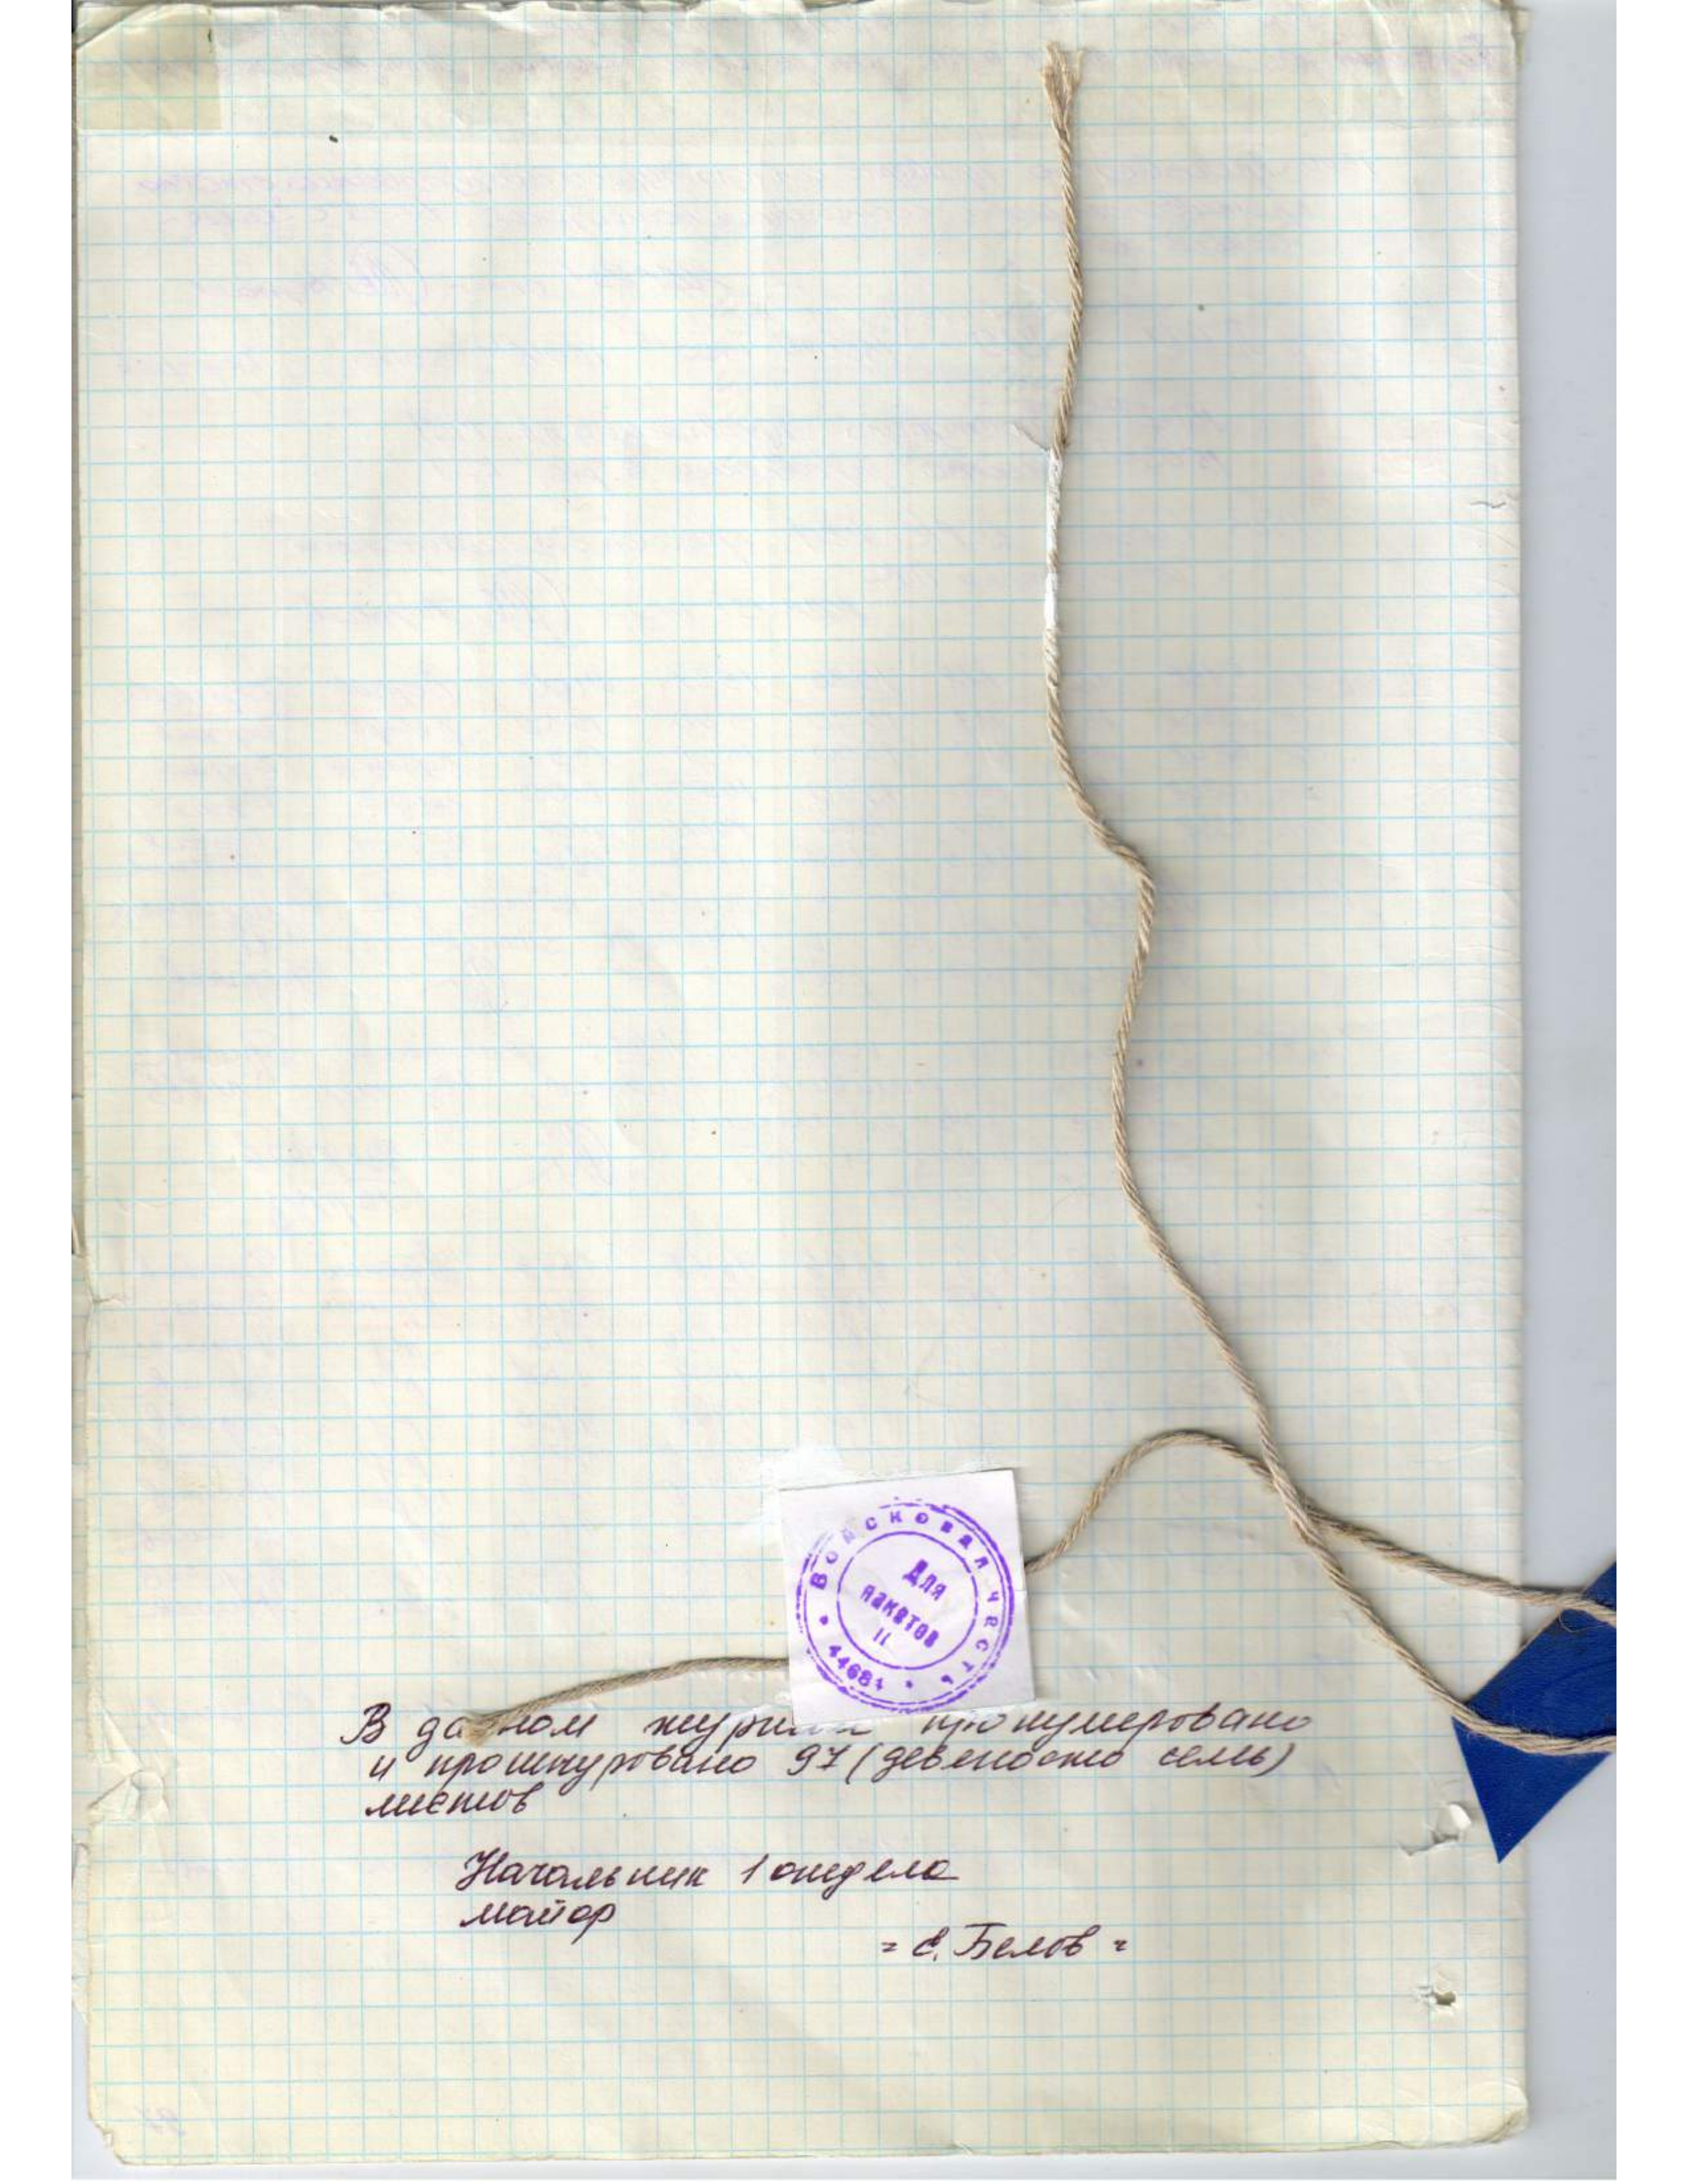 ВОЙСКОВАЯ ЧАСТЬ
Для
пакетов
II
44684
В данном журнале пронумеровано
и прошнуровано 97 (девеносто семь)
листов
Начальник 1 отдела
майор
= Е. Белов =